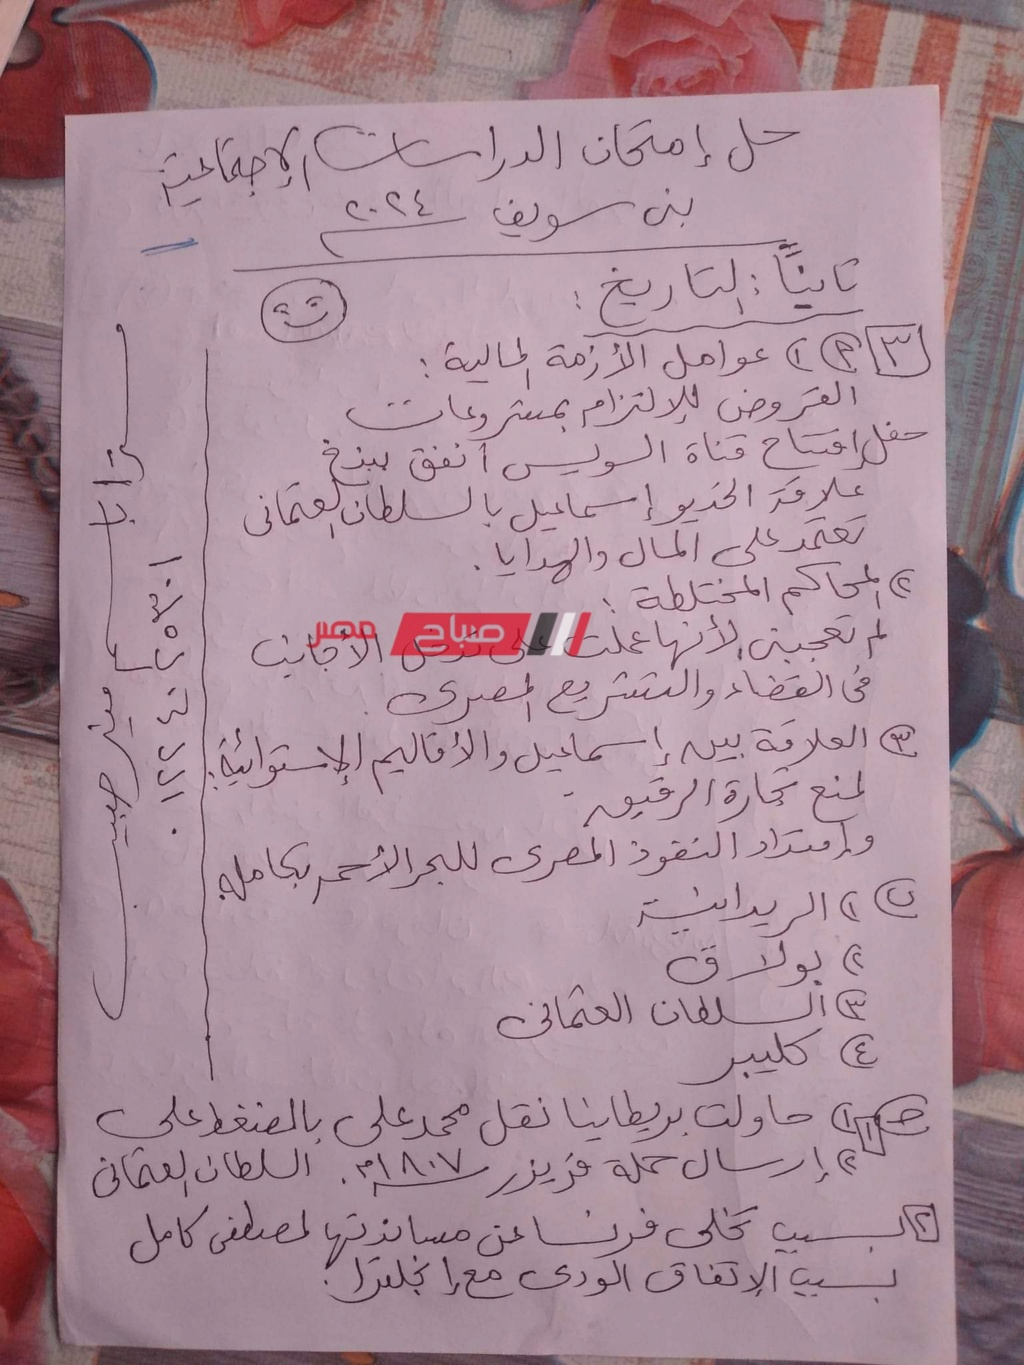 حل إمتحان الدراسات الإجتماعية
بنى سويف ٢٠٢٤
ثانيًا: التاريخ:
٣ P ١ عوامل الأزمة المالية:
القروض للإلتزام بمشروعات
حفل إفتتاح قناة السويس أنفق ببذخ
علاقة الخديو إسماعيل بالسلطان العثمانى
تعتمد على المال والهدايا.
٢ المحاكم المختلطة:
لم تعجبنى لأنها عملت على تدخل الأجانب
فى القضاء والتشريع المصرى.
٣ العلاقة بين إسماعيل والأقاليم الإستوائية:
لمنع تجارة الرقيق.
وإمتداد النفوذ المصرى للبحر الأحمر بكامله.
ب ١ الريدانية
٢ بولاق
٣ السلطان العثمانى
٤ كليبر
حـ ١ ١ حاولت بريطاينا نقل محمد على بالضغط على
٢ إرسال حملة فريزر ١٨٠٧م. السلطان العثمانى
٢ بسبب تخلى فرنسا عن مساندتها لمصطفى كامل
بسبب الإتفاق الودى مع إنجلترا.
ميثر حبيب
٠١٢٢٤٠٢٥٣٠١
صباح مصر